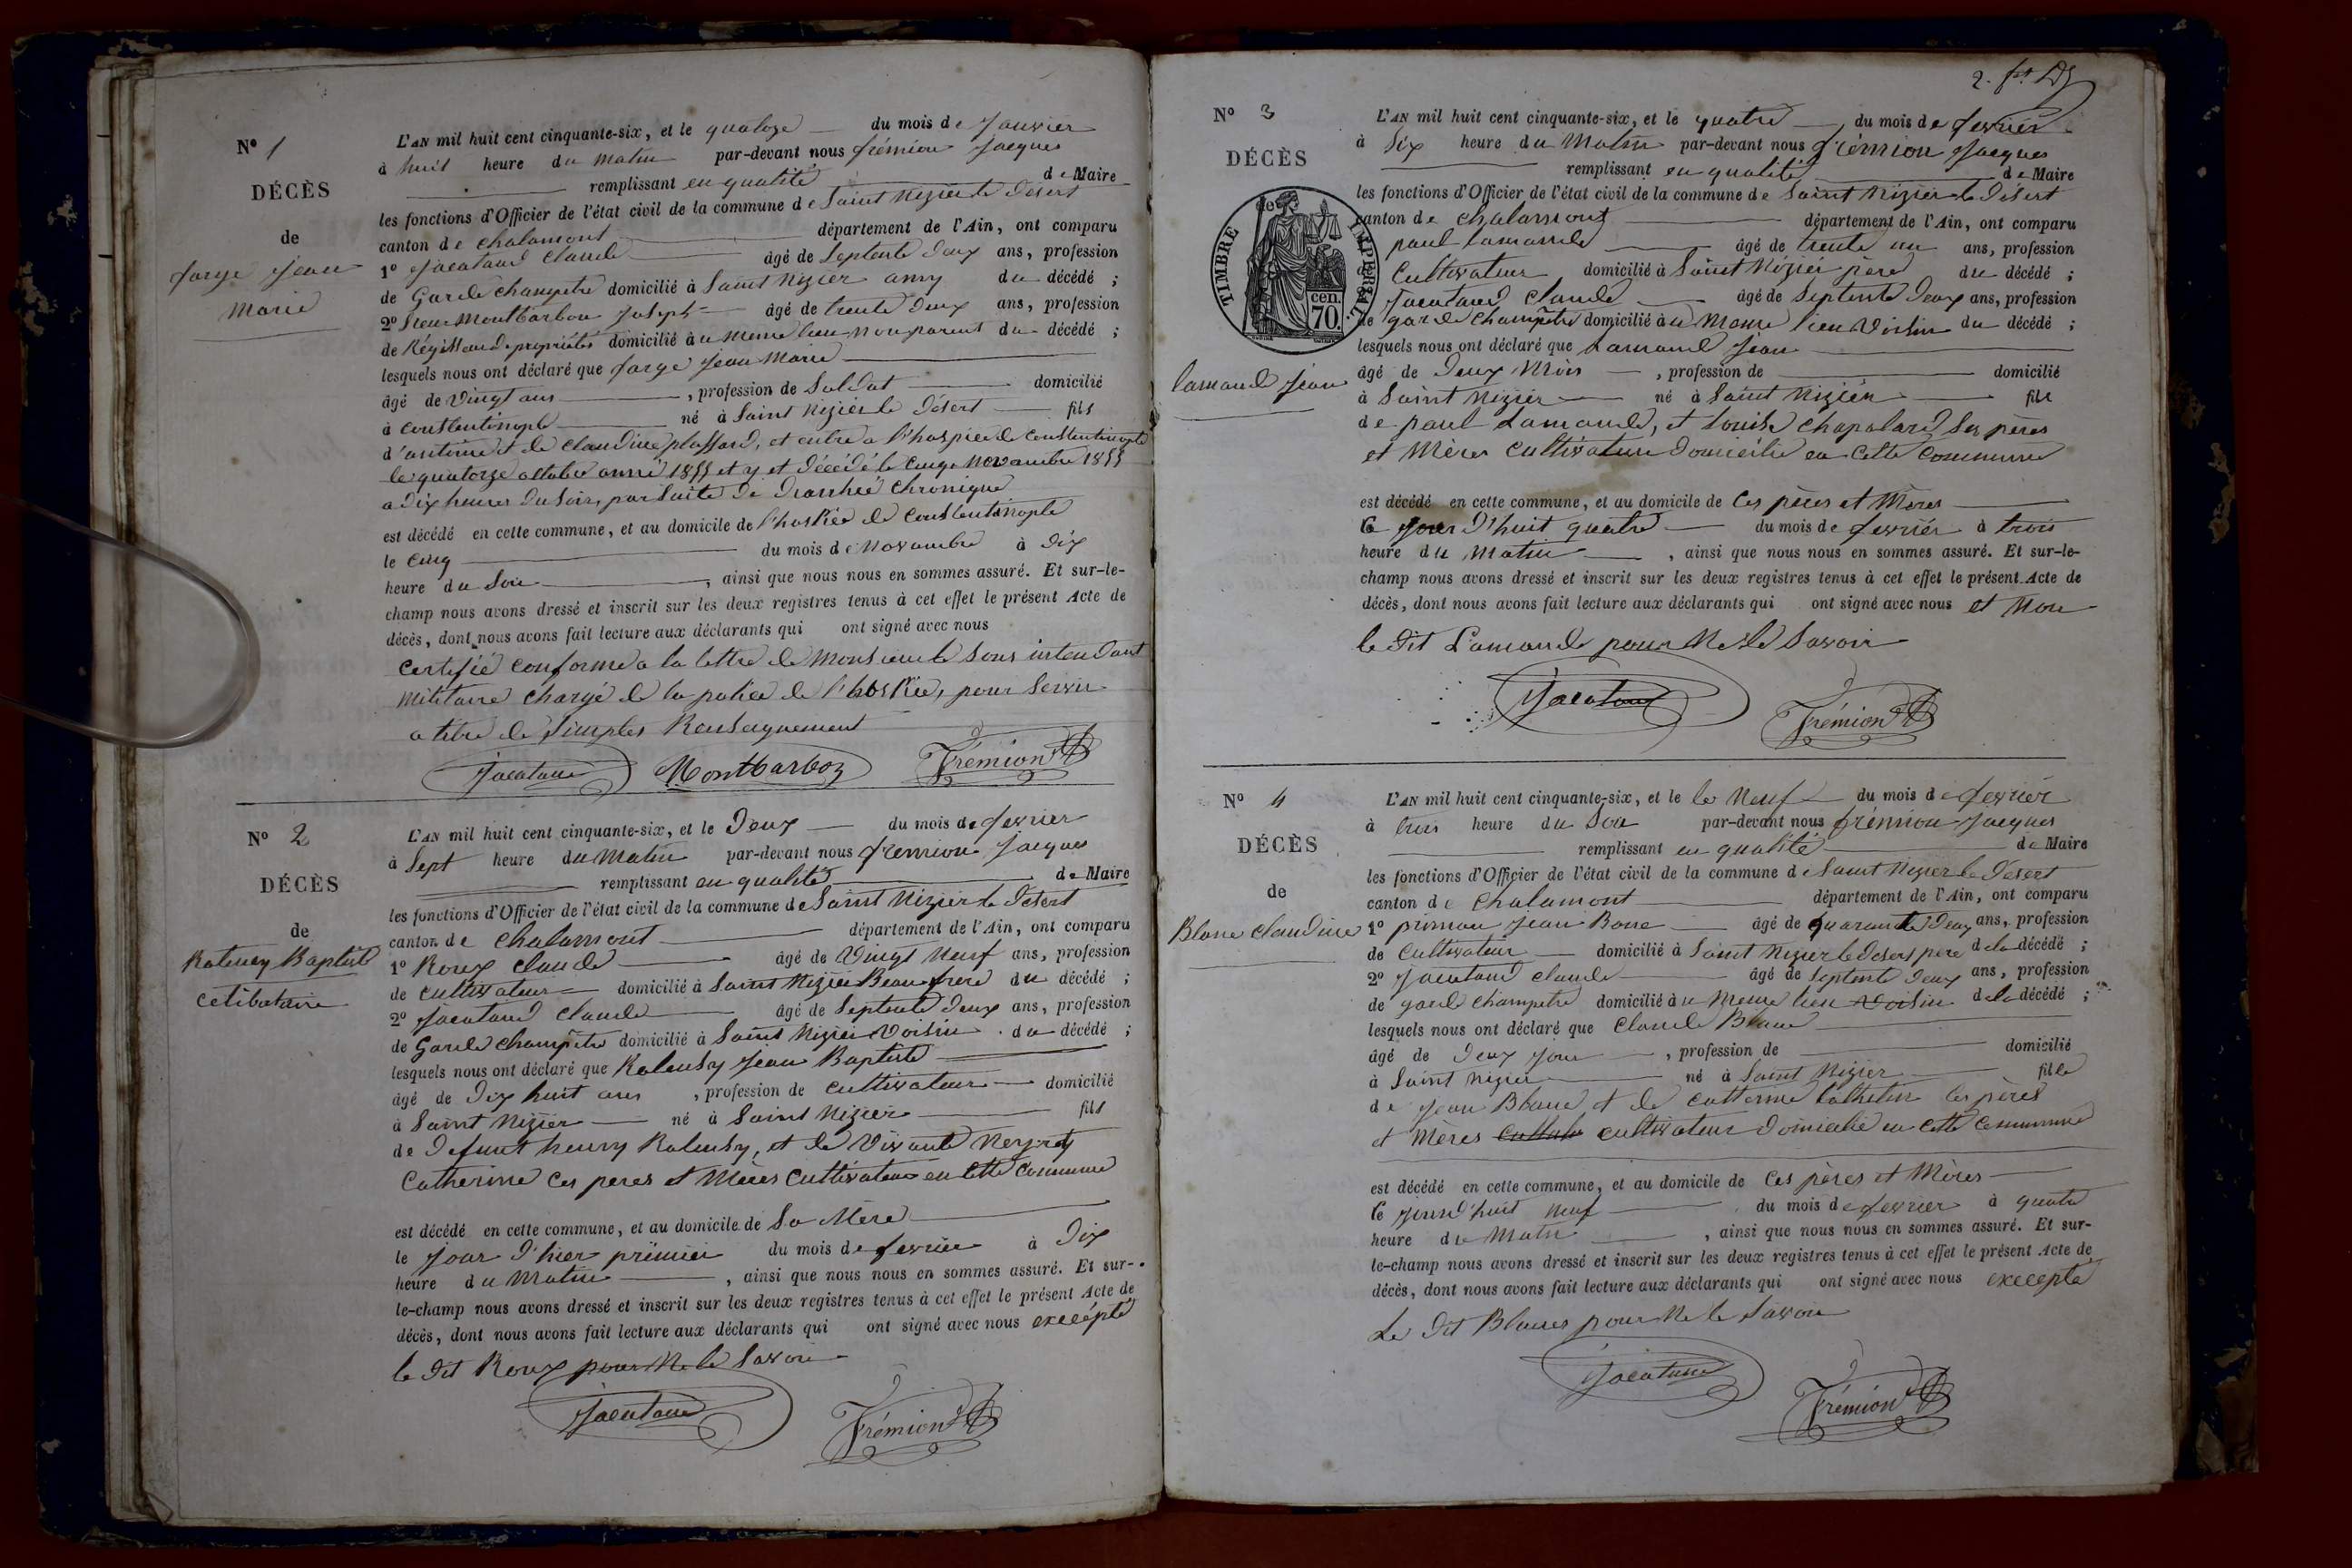 N° 1
DÉCÈS
de
farge Jean
Marie
L'AN mil huit cent cinquante-six, et le quatoze du mois de Janvier
à huit heure du matin par-devant nous frémion Jacques
remplissant en qualité de Maire
les fonctions d'Officier de l'état civil de la commune de Saint Nizier le Désert
canton de chalamont département de l'Ain, ont comparu
1° Jacataud Claude âgé de Septente deux ans, profession
de Garde champetre domicilié à Saint Nizier amy du décédé ;
2° Sieur Montbarbon Joseph âgé de trente deux ans, profession
de Régisseur de propriétés domicilié à u meme lieu non parent du décédé ;
lesquels nous ont déclaré que farge Jean Marie
âgé de Vingt ans , profession de Soldat domicilié
à Constentinople né à Saint Nizier le Désert fils
d'antoine et de Claudine plassard, et entré a l'hospice de Constentinople
le quatorze octobre anné 1855 et y et décédé le Cinq Novambre 1855
a dix heures du Soir, par Suite de Diarrhée Chronique
est décédé en cette commune, et au domicile de l'hospice de Constentinople
le Cinq du mois de Novambre à dix
heure du Soir , ainsi que nous nous en sommes assuré. Et sur-le-
champ nous avons dressé et inscrit sur les deux registres tenus à cet effet le présent Acte de
décès, dont nous avons fait lecture aux déclarants qui ont signé avec nous
Certifié conforme a la lettre de Monsieur le Sous intendant
Militaire chargé de la police de l'hospice, pour Servir
a titre de Simples Renseignement
Jacataud Montbarbon Frémion
N° 2
DÉCÈS
de
Baptiste
Célibataire
L'AN mil huit cent cinquante-six, et le Deux du mois de fevrier
à Sept heure du Matin par-devant nous fremion Jacques
remplissant en qualité de Maire
les fonctions d'Officier de l'état civil de la commune de Saint Nizier le Désert
canton de Chalamont département de l'Ain, ont comparu
1° Roux Claude âgé de Vingt Neuf ans, profession
de Cultivateur domicilié à Saint Nizier Beau frere du décédé ;
2° Jacataud Claude âgé de Septente deux ans, profession
de Garde Champêtre domicilié à Saint Nizier Voisin du décédé ;
lesquels nous ont déclaré que Jean Baptiste
âgé de Dix huit ans , profession de cultivateur domicilié
à Saint Nizier né à Saint Nizier fils
de Defunt henry et de Vivante
Catherine Ces peres et Mères Cultivateur en Cette Commune
est décédé en cette commune, et au domicile de Sa Mère
le Jour d'hier prémier du mois de fevrier à Dix
heure du Matin , ainsi que nous nous en sommes assuré. Et sur-
le-champ nous avons dressé et inscrit sur les deux registres tenus à cet effet le présent Acte de
décès, dont nous avons fait lecture aux déclarants qui ont signé avec nous excépté
le dit Roux pour Ne le Savoir
Jacataud Frémion
2.
N° 3
DÉCÈS
TIMBRE IMPÉRIAL
70 cen.
Lamande Jean
L'AN mil huit cent cinquante-six, et le quatre du mois de fevrier
à Six heure du Matin par-devant nous frémion Jacques
remplissant en qualité de Maire
les fonctions d'Officier de l'état civil de la commune de Saint Nizier le Désert
canton de Chalamont département de l'Ain, ont comparu
paul Lamande âgé de trente un ans, profession
Cultivateur domicilié à Saint Nizier père du décédé ;
Jacataud Claude âgé de Septente deux ans, profession
de garde Champêtre domicilié à u Meme lieu Voisin du décédé ;
lesquels nous ont déclaré que Lamande Jean
âgé de Deux Mois , profession de domicilié
à Saint Nizier né à Saint Nizier fils
de paul Lamande, et Louise Chapolard Ses pères
et Mères Cultivateur Domicilié en Cette Commune
est décédé en cette commune, et au domicile de Ces pères et Mères
le Jour d'huit quatre du mois de fevrier à trois
heure du Matin , ainsi que nous nous en sommes assuré. Et sur-le-
champ nous avons dressé et inscrit sur les deux registres tenus à cet effet le présent Acte de
décès, dont nous avons fait lecture aux déclarants qui ont signé avec nous et Non
le dit Lamande pour Ne le Savoir
Jacataud Frémion
N° 4
DÉCÈS
de
Blanc Claudine
L'AN mil huit cent cinquante-six, et le le Neuf du mois de fevrier
à trois heure du Soir par-devant nous frémion Jacques
remplissant en qualité de Maire
les fonctions d'Officier de l'état civil de la commune de Saint Nizier le Désert
canton de Chalamont département de l'Ain, ont comparu
1° Jean âgé de quarante Deux ans, profession
de Cultivateur domicilié à Saint Nizier le Desert père de la décédé ;
2° Jacataud Claude âgé de Septente Deux ans, profession
de garde Champetre domicilié à u Meme lieu Voisin de la décédé ;
lesquels nous ont déclaré que Claude Blanc
âgé de Deux Jour , profession de domicilié
à Saint Nizier né à Saint Nizier fille
de Jean Blanc, et de Catterine ces pères
et Mères cultivateur Domicilié en cette Commune
est décédé en cette commune, et au domicile de Ces pères et Mères
le jourd'huit neuf du mois de fevrier à quatre
heure du Matin , ainsi que nous nous en sommes assuré. Et sur-
le-champ nous avons dressé et inscrit sur les deux registres tenus à cet effet le présent Acte de
décès, dont nous avons fait lecture aux déclarants qui ont signé avec nous excepté
Le dit Blanc pour Ne le Savoir
Jacataud Frémion